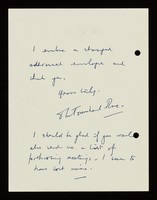 I enclose a stamped
addressed envelope and
thank you.
Yours truly,
I should be glad if you would
also send me a list of
forthcoming meetings. I seem to
have lost mine.